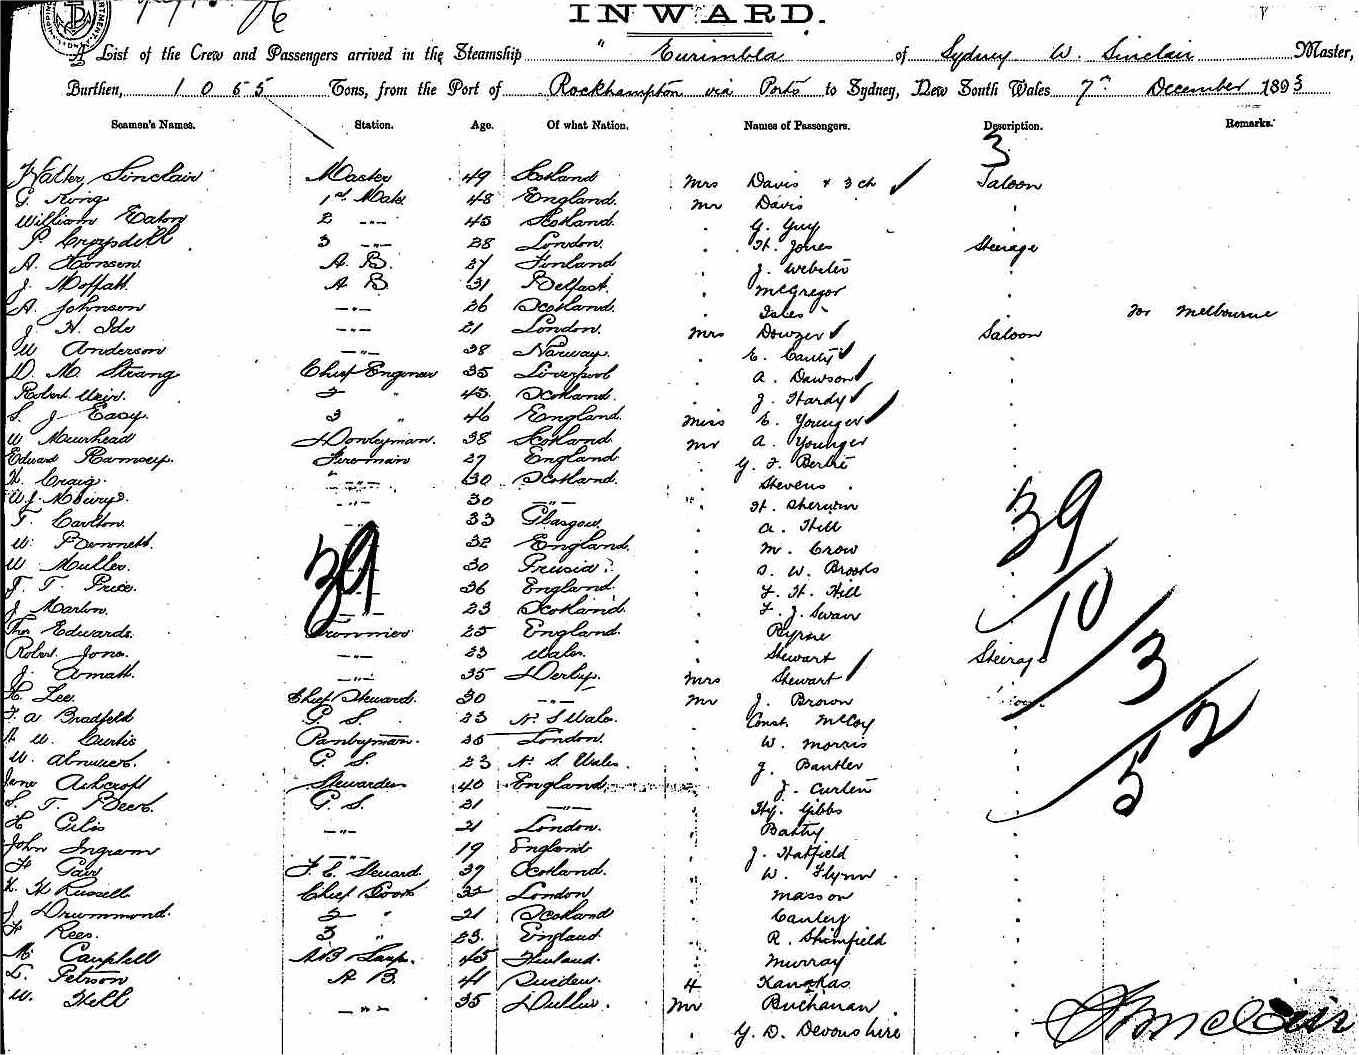 INWARD.
A List of the Crew and Passengers arrived in the Steamship " Eurimbla of Sydney W. Sinclair Master,
Burthen, 1065 Tons, from the Port of Rockhampton via Ports to Sydney, New South Wales 7th December 1895
Seamen's Names. Station. Age. Of what Nation. Names of Passengers. Description. Remarks.
3
Walter Sinclair Master 49 Scotland Mrs Davis + 3 ch Saloon
G. King 1st Mate 48 England Mr Davis
William Eaton 2 -"- 45 Scotland . G. Guy
28 London. . H. Jones Steerage
A. Hansen A. B. 27 Finland . J. Webster
J. Moffatt A B 31 Belfast. . McGregor
A. Johnson -"- 26 Scotland. . Isles For Melbourne
J. H. Ide -"- 21 London. Mrs Dowzer Saloon
W Anderson -"- 38 Norway. . E. Cauty
D. M. Strang Chief Engineer 35 Liverpool . A. Dawson
Robert Weir. 2 " 43. Scotland. . J. Hardy
S. J. Easy. 3 " 46 England. Miss E. Younger
W Muirhead Donkeyman. 38 Scotland Mr A. Younger
Edward Ramsey. Fireman 27 England G. F. Berthe
H. Craig. -"- 30 Scotland. Stevens .
-"- 30 -"- " H. Sherwin
T. Carlton. -"- 33 Glasgow . A. Hill
W. Bennett. 32 England. . M. Crow
W Muller. 30 Prusia . S. W. Brooks
T. Price. 36 England. . F. H. Hill
J Martin. 23 Scotland . F. J. Swan
Thos Edwards. Trimmer 25 England. . Byrne
Robert Jones. -"- 23 Wales. . Stewart Steerage
J. -"- 35 Derby. Mrs Stewart
H. Lee. Chief Steward. 30 -"- Mr J. Brown
F. A Bradfeld G. S. 23 N. S Wales. . Const. McCoy
A W. Curtis Pantryman. London. . W. Morris
W. G. S. 23 N. S Wales. . J. Bantler
Jane Ashcroft Stewardess 40 England . J. Curten
S. T. G. S. 21 -"- . Hy. Gibbs
H -"- 21 London. . Bathy
John Ingram -"- 19 England . J. Hatfield
F. C. Steward. 39 Scotland. . W. Flynn
H Russell Chief Cook London . Masson
J Drummond. 2 " 21 Scotland . Cautery
Rees. 3 " 23. England. . R. Shimfield
M. Campbell AB Lamp. 45 Finland. . Murray
L. Petrson A B. 41 Sweden. 4 Kanakas
W. Hell -"- 35 Mr Buchanan
. G. D. Devonshire
39
39
10
3
52
W Sinclair